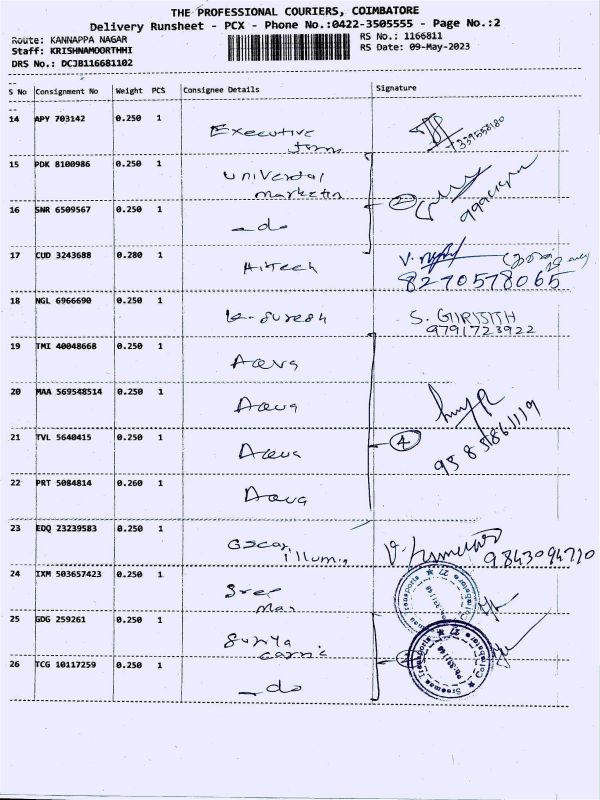 THE PROFESSIONAL COURIERS, COIMBATORE
Delivery Runsheet - PCX - Phone No.:0422-3505555 - Page No.:2
Route: KANNAPPA NAGAR
Staff: KRISHNAMOORTHHI
DRS No.: DCJB116681102
RS No.: 1166811
RS Date: 09-May-2023
S No Consignment No Weight PCS Consignee Details Signature
14 APY 703142 0.250 1 Executive
15 PDK 8100986 0.250 1 Universal
marketin
16 SNR 6509567 0.250 1 - do 2
17 CUD 3243688 0.280 1 Hitech
8270578065
18 NGL 6966690 0.250 1 K. Suresh S. GIRIJITH
9791723922
19 TMI 40048668 0.250 1 Aava
20 MAA 569548514 0.250 1 Aava
21 TVL 5640415 0.250 1 Aava 4
22 PRT 5084814 0.260 1 Aava
23 EDQ 23239583 0.250 1 Oscar
illumin
9843094710
24 IXM 503657423 0.250 1 Sree
Mar
25 GDG 259261 0.250 1 Surya
26 TCG 10117259 0.250 1 - do